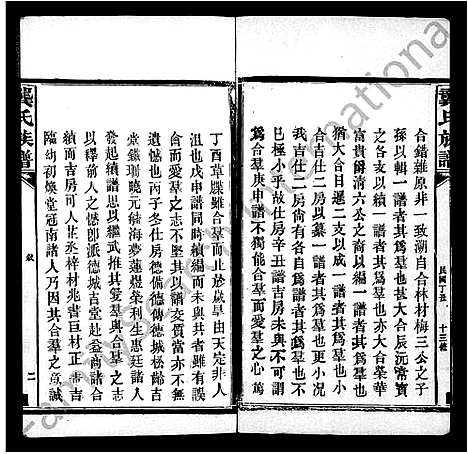 龔氏族譜
民國丁丑
十三修
合錯雜原非一致溯自合林材梅三公之子
孫以輯一譜者其為羣也甚大合辰沅常寶
之各支以續一譜者其為羣也亦大合榮華
富貴爵清六公之裔以續一譜者其為羣也
猶大合日遷二支以成一譜者其為羣也小
合吉仕二房以纂一譜者其為羣也更小
合吉仕二房尚有各自其為羣也
已極小乎故仕房辛丑譜吉房與不可謂
為合羣庚申譜不獨能合羣之心焉
丁酉草牒雖合羣而止於歲旱由天定非人
沮也戊申譜同時續編而未與共雖有誤
會而愛羣之志不墜其以譜嗣當亦不無
遺憾也迄今仕房德備德傳德城松齡吉
堂鐵珊曉元紬海夢蓮煜榮紫惠廷諸人
發起續譜思以繼武推其愛羣與合羣之志
以釋前人之憾即派德城吉堂赴益商諸合
續而吉房可人丕承梓材兆書巨材正市吉
臨幼初煥堂冠南諸人乃因其合羣之意誠
龔氏族譜
敘
二